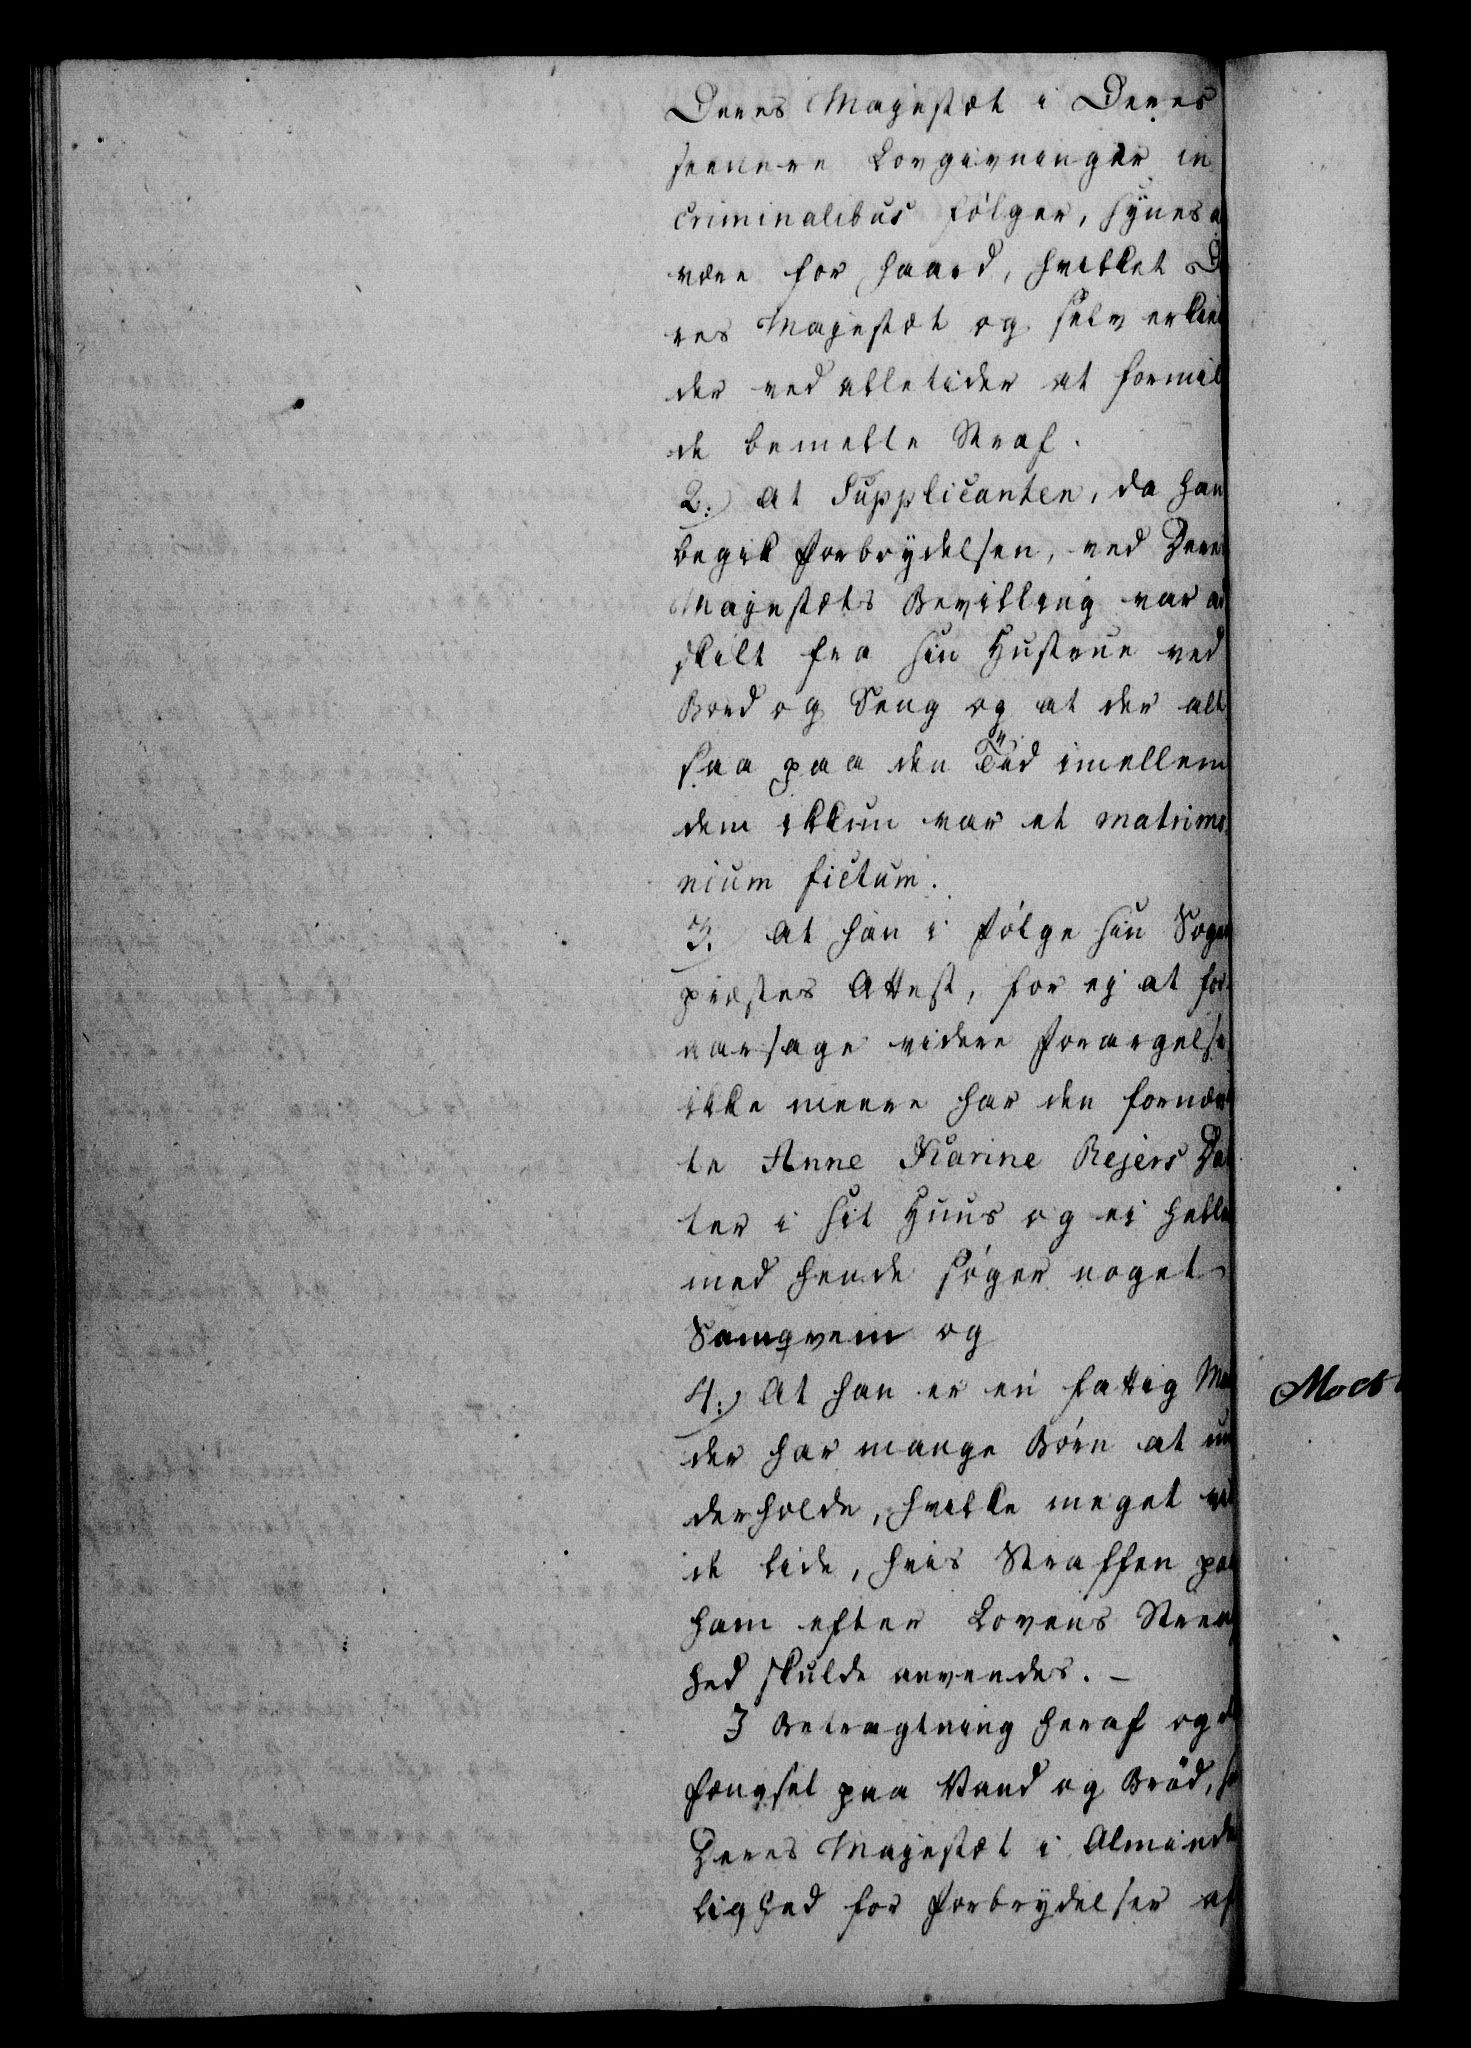 Deres Majestæt i Deres
seenere Lovgivninger in
criminalibus følger, synes a
være for haard, hvilket De
res Majestæt og selv erkien
der ved alletider at formil
de bemelte Straf.
2.) At Supplicanten, da han
begik Forbrydelsen, ved Deres
Majestæts Bevilling var ad
skilt fra sin Hustrue ved
Bord og Seng og at der alt
saa paa den Tiid imellem
dem ikkun var et matrimo
nium fictum.
3.) At han i Følge sin Sogne
præstes Attest, for ej at for
aarsage videre Forargelse
ikke meere har den fornæv
te Anne Karine Rejers Dat
ter i sit Huus og ei heller
med hende søger noget
Samqvem og
4.) At han er en fattig Man
der har mange Børn at un
derholde, hvilke meget vil
de lide, hvis Straffen paa
ham efter Lovens Streng
hed skulde anvendes. –
I Betragtning heraf og at
Fængsel paa Vand og Brød, som
Deres Majestæt i Alminde
lighed for Forbrydelser af